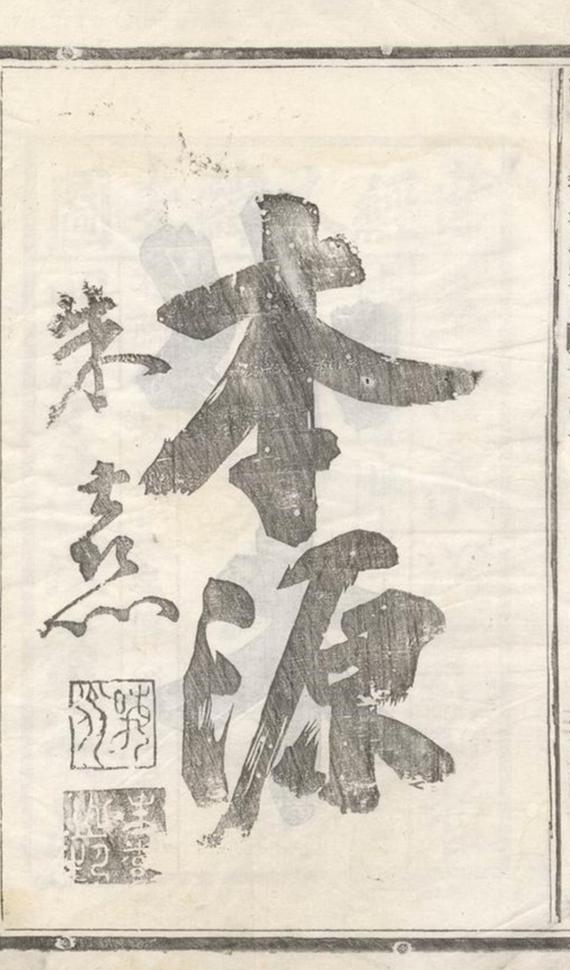 本源
朱熹